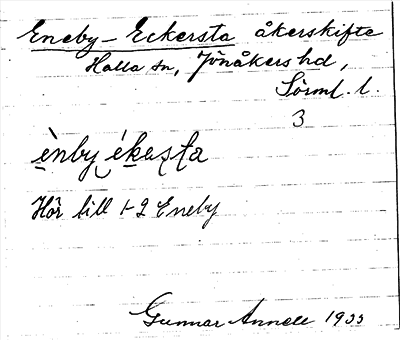 Eneby-Eckersta åkerskifte
Halla sn, Jönåkers hd,
Sörml. l.
3
ènby ékesta
Hör till 1-2 Eneby
Gunnar Annell 1933